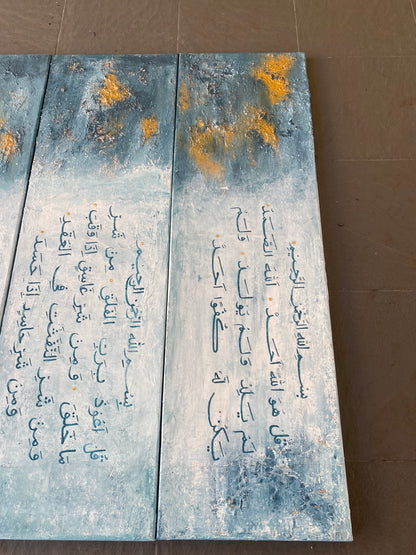 بِسْمِ اللهِ الرَّحْمٰنِ الرَّحِيمِ
قُلْ هُوَ اللهُ أَحَدٌ اللهُ الصَّمَدُ
لَمْ يَلِدْ وَلَمْ يُولَدْ وَلَمْ
يَكُن لَّهُ كُفُوًا أَحَدٌ
بِسْمِ اللهِ الرَّحْمٰنِ الرَّحِيمِ
قُلْ أَعُوذُ بِرَبِّ الْفَلَقِ مِن شَرِّ
مَا خَلَقَ وَمِن شَرِّ غَاسِقٍ إِذَا وَقَبَ
وَمِن شَرِّ النَّفّٰثٰتِ فِي الْعُقَدِ
وَمِن شَرِّ حَاسِدٍ إِذَا حَسَدَ